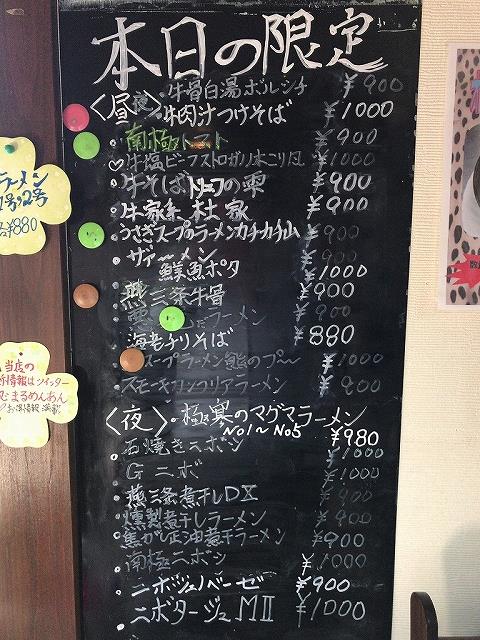 本日の限定
〈昼夜〉・牛骨白湯ボルシチ ¥900
・牛肉汁つけそば ¥1000
・南極トマト ¥900
♡牛塩ビーフストロガノフ ¥1000
・牛そばトリュフの雫 ¥900
・牛家系 杜家 ¥900
・うさぎスープのラーメンカチカチ山 ¥900
・ザァ〜メン ¥900
鮮魚ポタ ¥1000
・燕三条牛骨 ¥900
ラーメン ¥900
・海老チリそば ¥880
スープラーメン熊のプ〜 ¥1000
・スモーキーカンフリアラーメン ¥900
〈夜〉・極寒のマグマラーメン
No1〜No5 ¥980
・石焼きニボシ ¥1000
・Gニボ ¥1000
・燕三条煮干しDX ¥900
・燻製煮干しラーメン ¥900
・焦がし正油煮干しラーメン ¥900
・南極ニボシ ¥1000
・ニボジェノベーゼ ¥900
・ニボタージュMII ¥1000
ラーメン
1号,2号
¥880
当店の
情報はツイッター
まるめんあん
お得情報満載